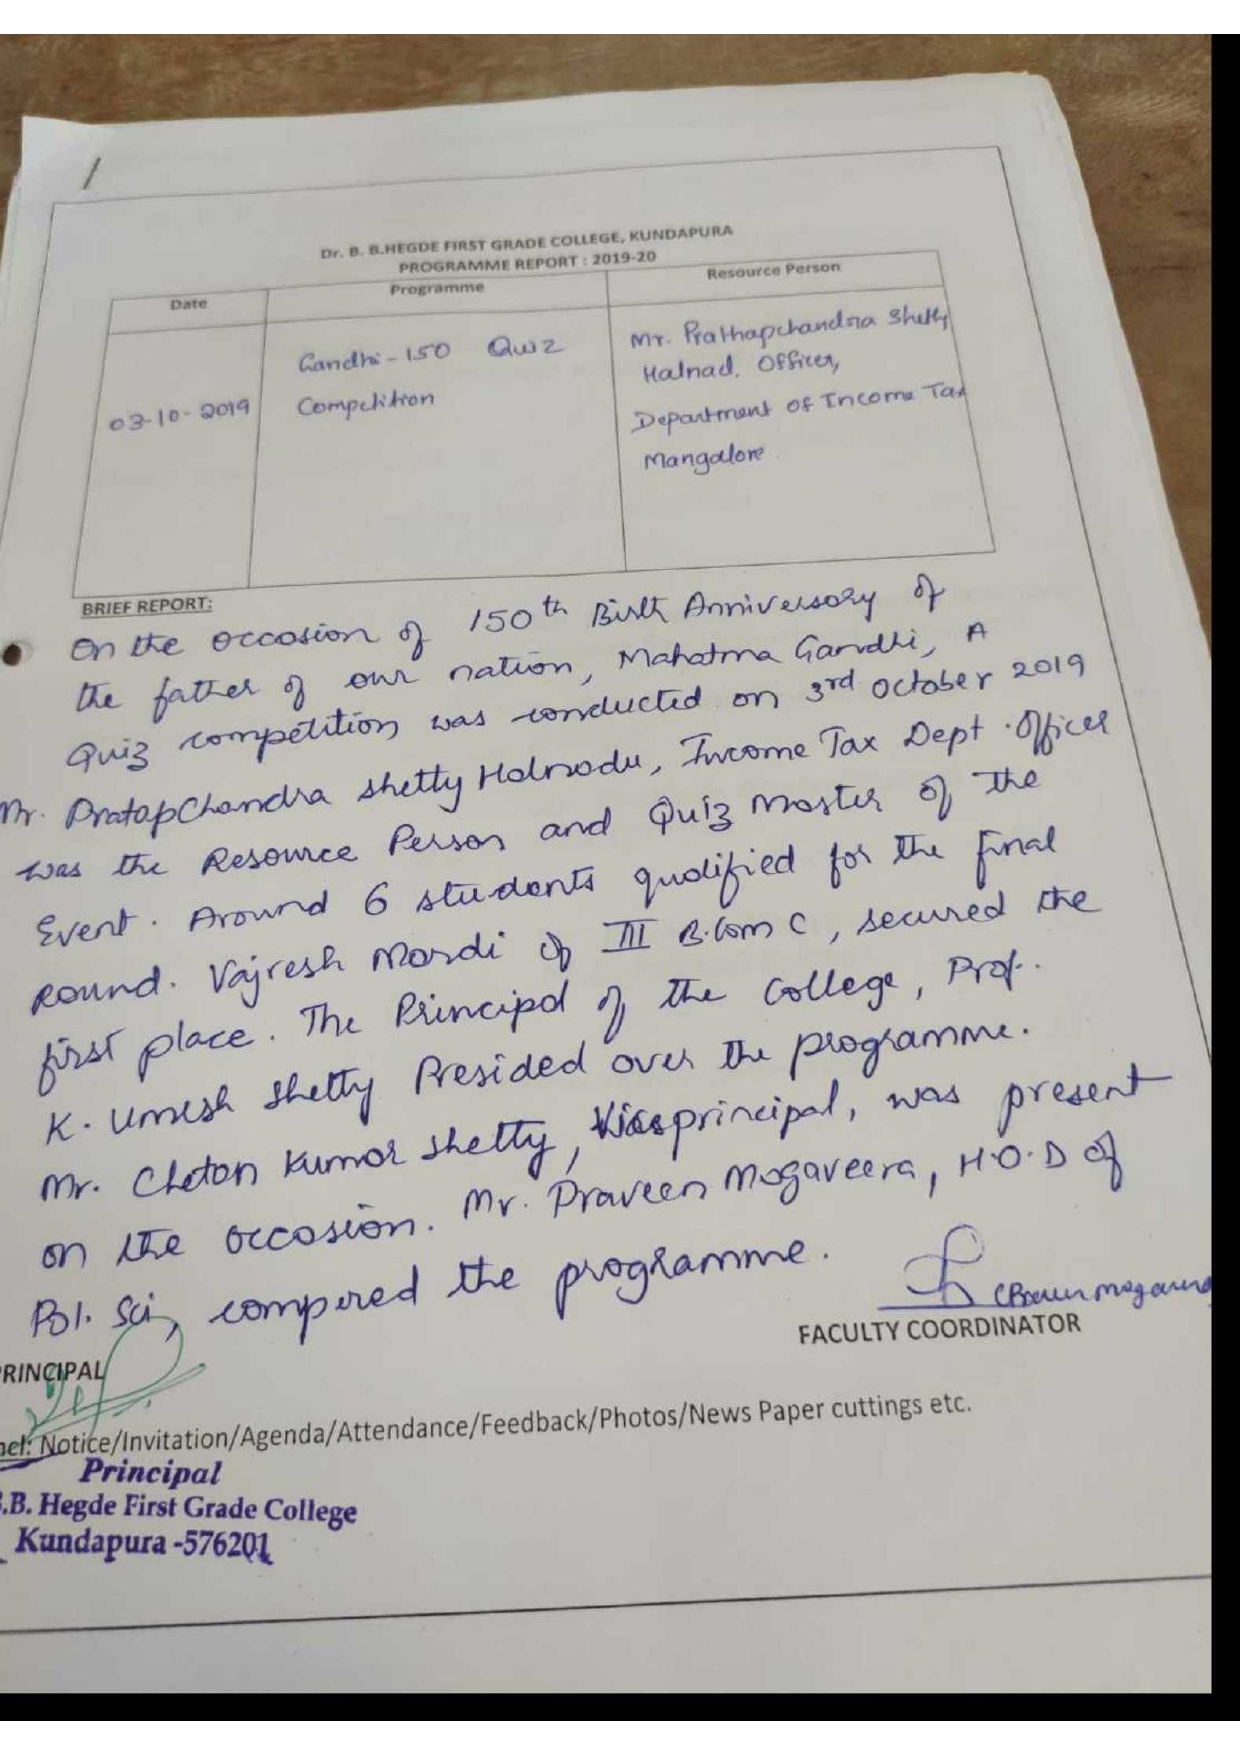 Dr. B. B.HEGDE FIRST GRADE COLLEGE, KUNDAPURA
PROGRAMME REPORT : 2019-20
Date Programme Resource Person
03-10-2019
Gandhi-150 Quiz
Competition
Mr. Prathapchandra Shetty
Halnad, Officer,
Department of Income Tax
Mangalore
BRIEF REPORT:
On the occasion of 150th Birth Anniversary of
the father of our nation, Mahatma Gandhi, A
Quiz competition was conducted on 3rd October 2019
Mr. PratapChandra Shetty Halnadu, Income Tax Dept. Officer
was the Resource Person and Quiz Master of the
Event. Around 6 students qualified for the final
round. Vajresh Mardi of III B.Com C, secured the
first place. The Principal of the College, Prof.
K. Umesh Shetty Presided over the programme.
Mr. Chetan Kumar Shetty, Viceprincipal, was present
on the occasion. Mr. Praveen Mogaveera, H.O.D of
Pol. Sci, compered the programme.
FACULTY COORDINATOR
RINCIPAL
Notice/Invitation/Agenda/Attendance/Feedback/Photos/News Paper cuttings etc.
Principal
.B. Hegde First Grade College
Kundapura -576201